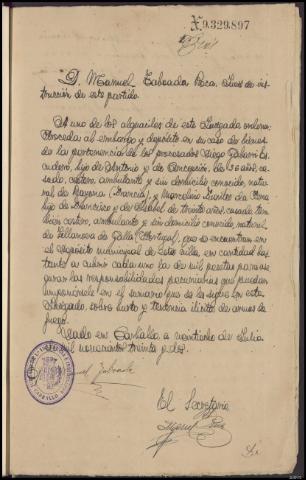 X.9.329.897
D. Manuel Taboada Roca, Juez de ins-
trucción de este partido.
A uno de los alguaciles de este Juzgado ordeno:
Proceda al embargo y depósito en su caso de bienes
de la pertenencia de los procesados Diego
hijo de Antonio y de Concepción, de años, ca-
sado, cestero, ambulante y sin domicilio conocido, natu-
ral de Bayona (Francia) y Marcelino
hijo de Francisco y de Isabel de treinta años, casado, tam-
bién cestero, ambulante y sin domicilio conocido, natural
de Villanova de Galla (Portugal), que se encuentran en
el depósito municipal de esta villa, en cantidad bas-
tante a cubrir cada uno la de mil pesetas para ase-
gurar las responsabilidades pecuniarias que puedan
imponérsele en el sumario que se les sigue en este
Juzgado, sobre hurto y tenencia ilícita de armas de
fuego.
Dado en Carballo a veintisiete de Julio
mil novecientos treinta y dos.
El Secretario